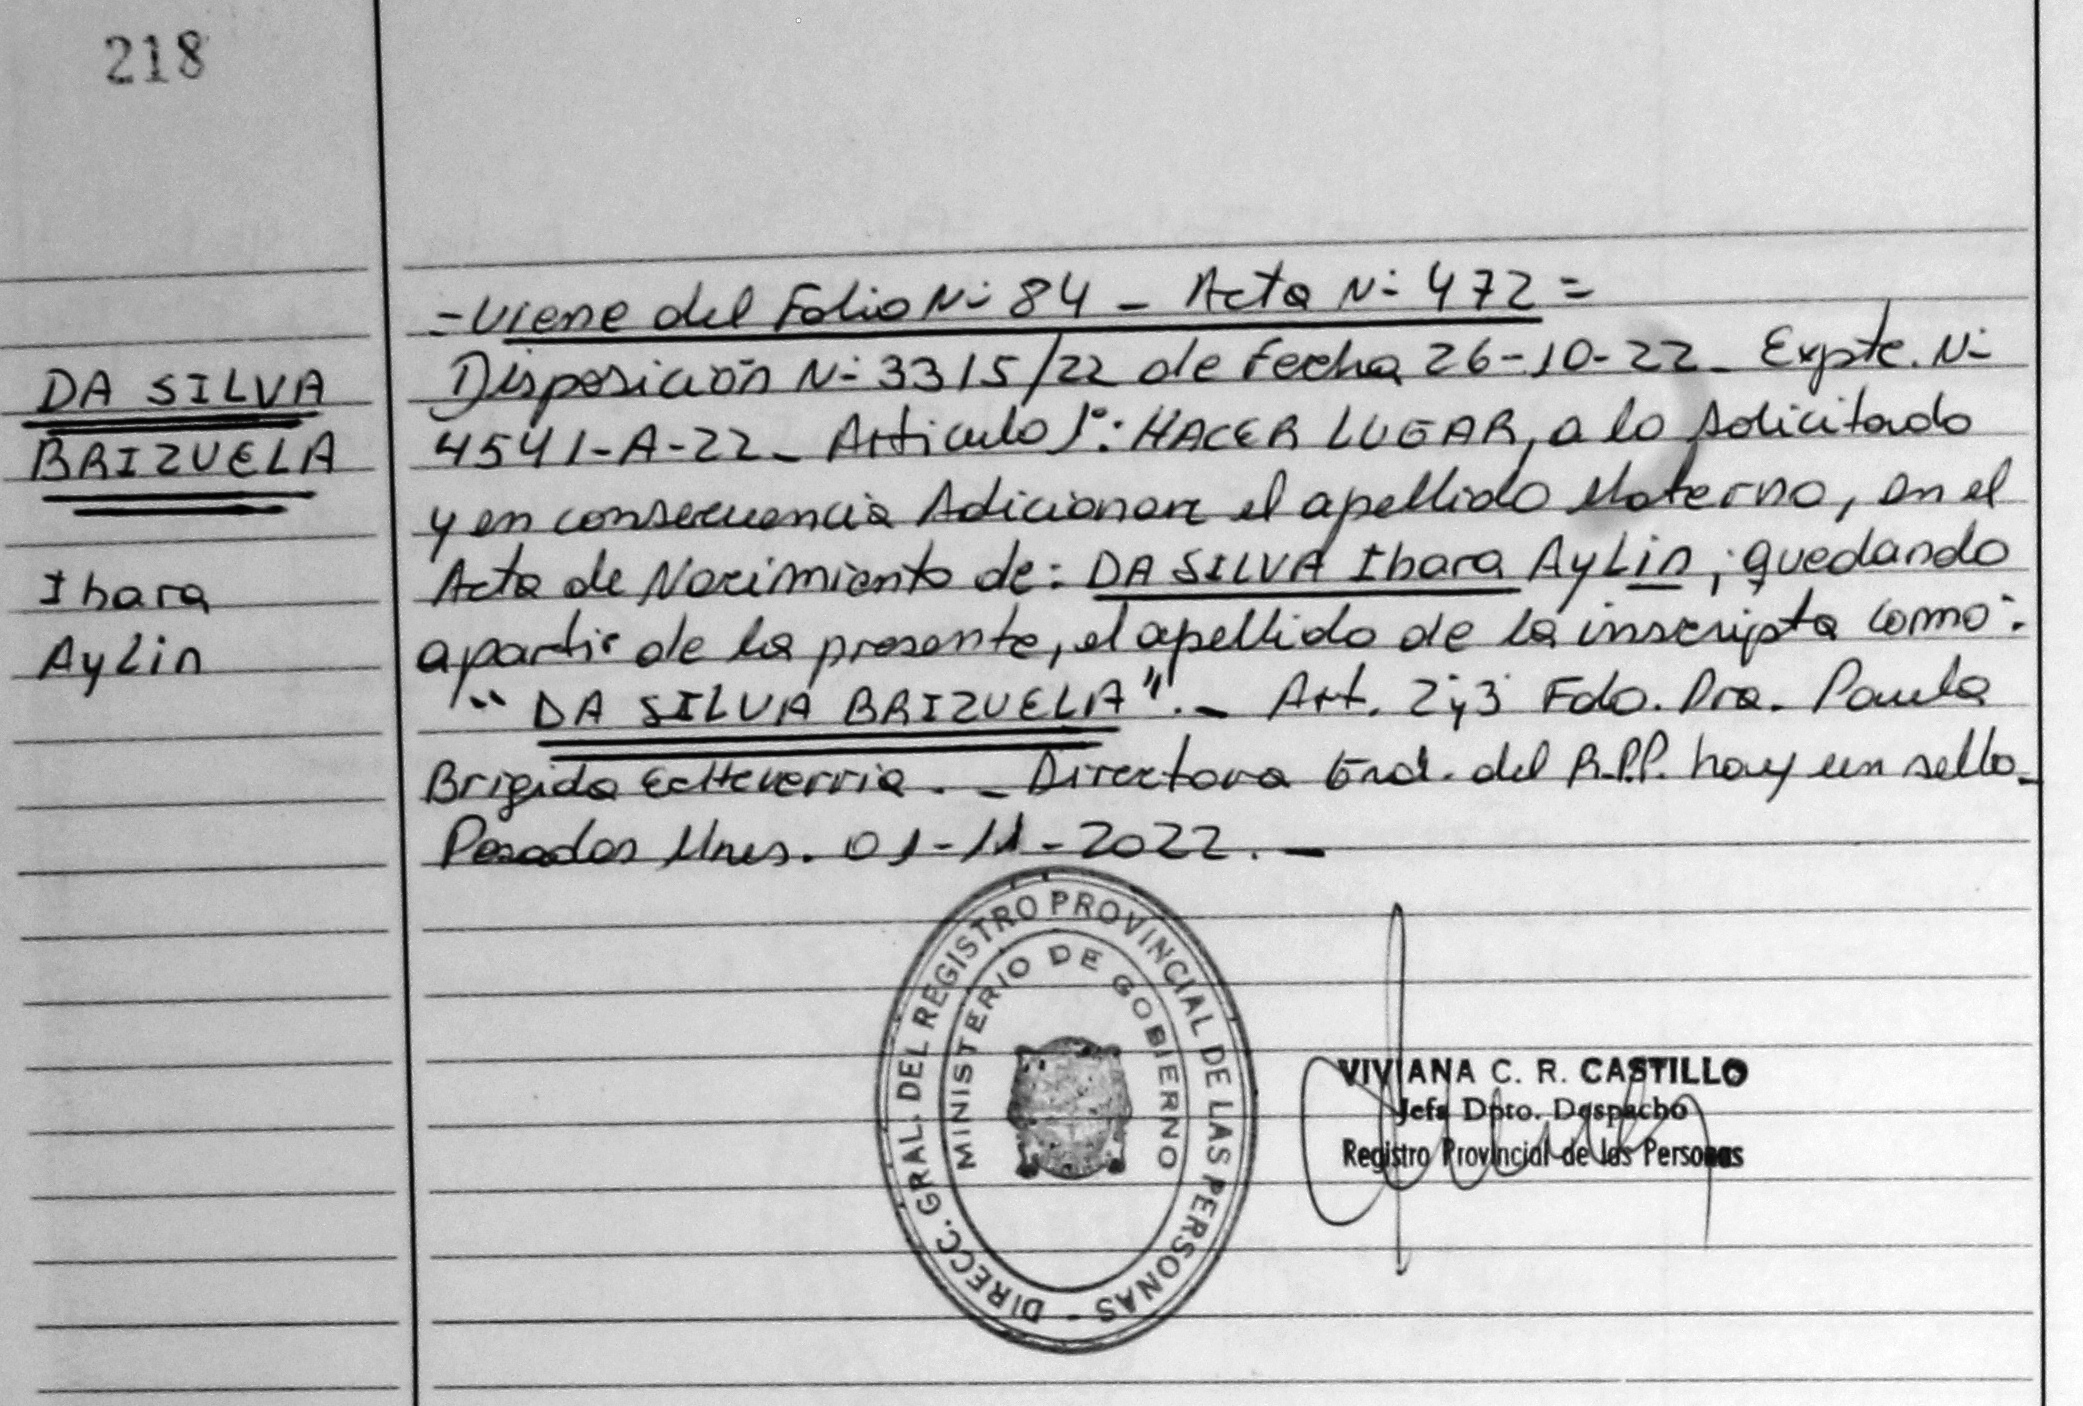 218
DA SILVA
BRIZUELA
Ibara
Aylin
=Viene del Folio N- 84 - Acta N- 472=
Disposición N- 3315/22 de Fecha 26-10-22_ Expte. N-
4541-A-22_ Articulo 1°: HACER LUGAR, a lo solicitado
y en consecuencia Adicionar el apellido Materno, en el
Acta de Nacimiento de: DA SILVA Ibara Aylin; quedando
a partir de la presente, el apellido de la inscripta como:
"DA SILVA BRIZUELA"._ Art. 2 y 3 Fdo. Dra. Paula
Brigida Echeverria._ Directora Gral. del R.P.P. hay un sello_
Posadas Mnes. 01-11-2022._
DIRECC. GRAL. DEL REGISTRO PROVINCIAL DE LAS PERSONAS -
MINISTERIO DE GOBIERNO
VIVIANA C. R. CASTILLO
Jefa Dpto. Despacho
Registro Provincial de las Personas